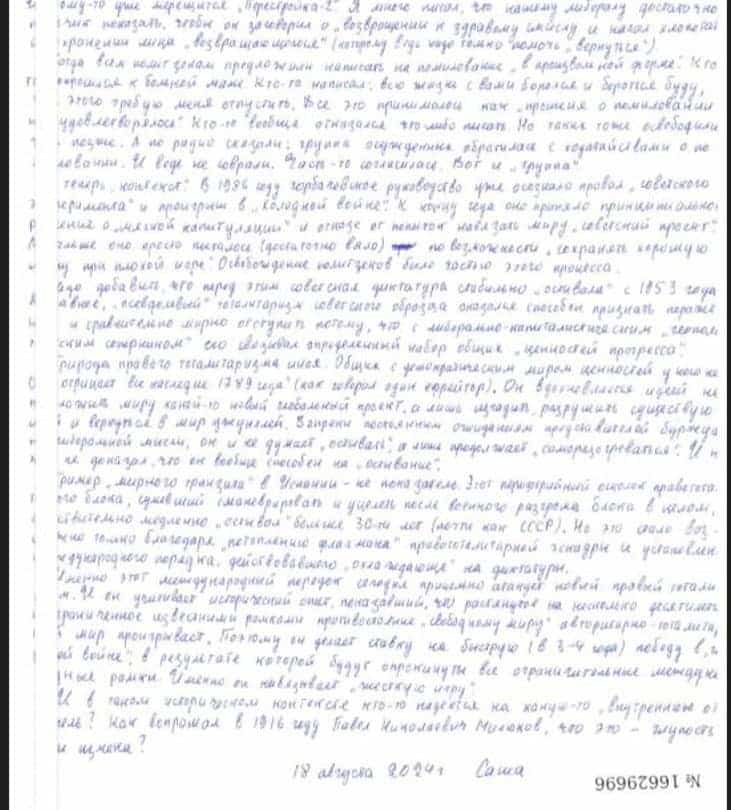 ому-то уже мерещится „Перестройка-2". Я много писал, что нашему либералу достаточно
чик показать, чтобы он заговорил о „возвращении к здравому смыслу и начал хлопотать
охранении лица „возвращающегося" (которому ведь надо только помочь „вернуться").
огда всем политзекам предложили написать на помилование „в произвольной форме". Кто
просился к больной маме. Кто-то написал: всю жизнь с вами боролся и бороться буду,
этого требую меня отпустить. Все это принималось как „прошения о помиловании
удовлетворялось". Кто-то вообще отказался что-либо писать. Но таких тоже освободили
позже. А по радио сказали: группа осужденных обратилась с ходатайствами о по
ловании. И ведь не соврали. Часть-то согласилась. Вот и „группа".
теперь „контекст". В 1986 году горбачевское руководство уже осознало провал „советского
еримента" и проигрыш в „холодной войне". К концу года оно приняло принципиальное
ение о „мягкой капитуляции" и отказе от попыток навязать миру „советский проект".
льше оно просто пыталось (достаточно вяло) по возможности „сохранять хорошую
у при плохой игре". Освобождение политзеков было частью этого процесса.
адо добавить, что перед этим советская диктатура стабильно „остывала" с 1953 года
авное, „псевдолевый" тоталитаризм советского образца оказался способен признать пораже
и сравнительно мирно отступить потому, что с либерально-капиталистическим „геополи
ским соперником" его связывал определенный набор общих „ценностей прогресса".
Природа правого тоталитаризма иная. Общих с демократическим миром ценностей у него не
отрицает все наследие 1789 года" (как говорил один ефрейтор). Он вдохновляется идеей не
ложить миру какой-то новый глобальный проект, а лишь изгадить, разрушить существую
й и вернуться в мир пращуров. Вопреки постоянным ожиданиям представителей буржуа
либеральной мысли, он и не думает „остывать", а лишь продолжает „саморазогреваться". И н
не доказал, что он вообще способен на „остывание".
ример „мирного транзита" в Испании - не показателен. Этот периферийный осколок правотота
ого блока, сумевший сманеврировать и уцелеть после военного разгрома блока в целом,
ствительно медленно „остывал" больше 30-ти лет (почти как СССР). Но это стало воз-
жно только благодаря „потоплению флагмана" правототалитарной эскадры и установлен
ждународного порядка, действовавшего „охлаждающе" на диктатуры.
Именно этот международный порядок сегодня прицельно атакует новый правый тотали
м. И он учитывает исторический опыт, показавший, что растянутое на несколько десятилет
граниченное известными рамками противостояние „свободному миру" авторитарно-тоталита
й мир проигрывает. Поэтому он делает ставку на быструю (в 3-4 года) победу в „г
ой войне", в результате которой будут опрокинуты все ограничительные междуна
дные рамки. Именно он навязывает „жесткую игру".
И в таком историческом контексте кто-то надеется на какую-то „внутреннюю о
ель? Как вопрошал в 1916 году Павел Николаевич Милюков, что это - глупость
и измена?
18 августа 2024г Саша
№ 16629696